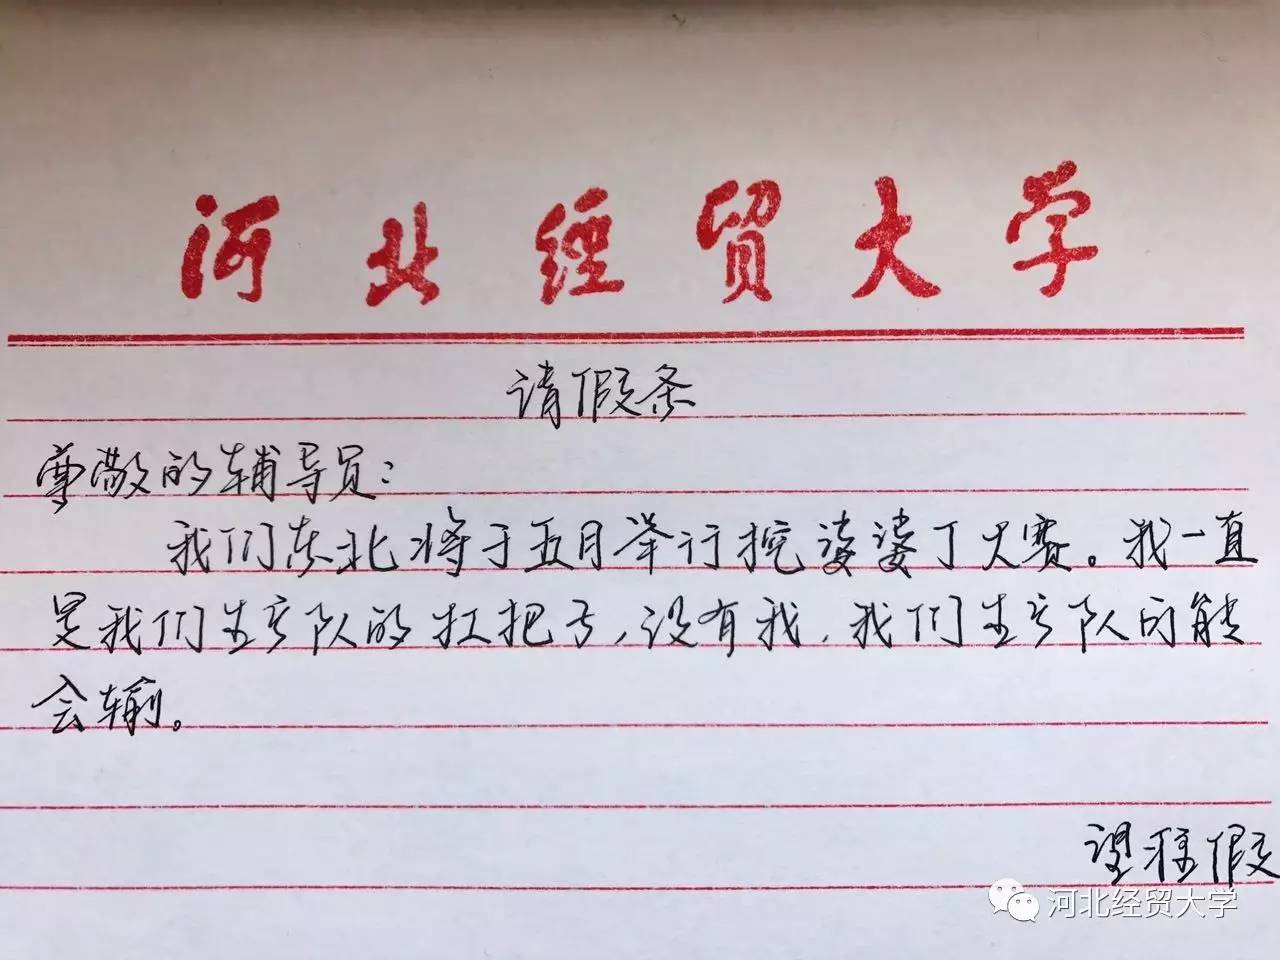 河北经贸大学
请假条
尊敬的辅导员：
我们东北将于五月举行挖婆婆丁大赛。我一直
是我们生产队的扛把子，没有我，我们生产队可能
会输。
望准假
河北经贸大学